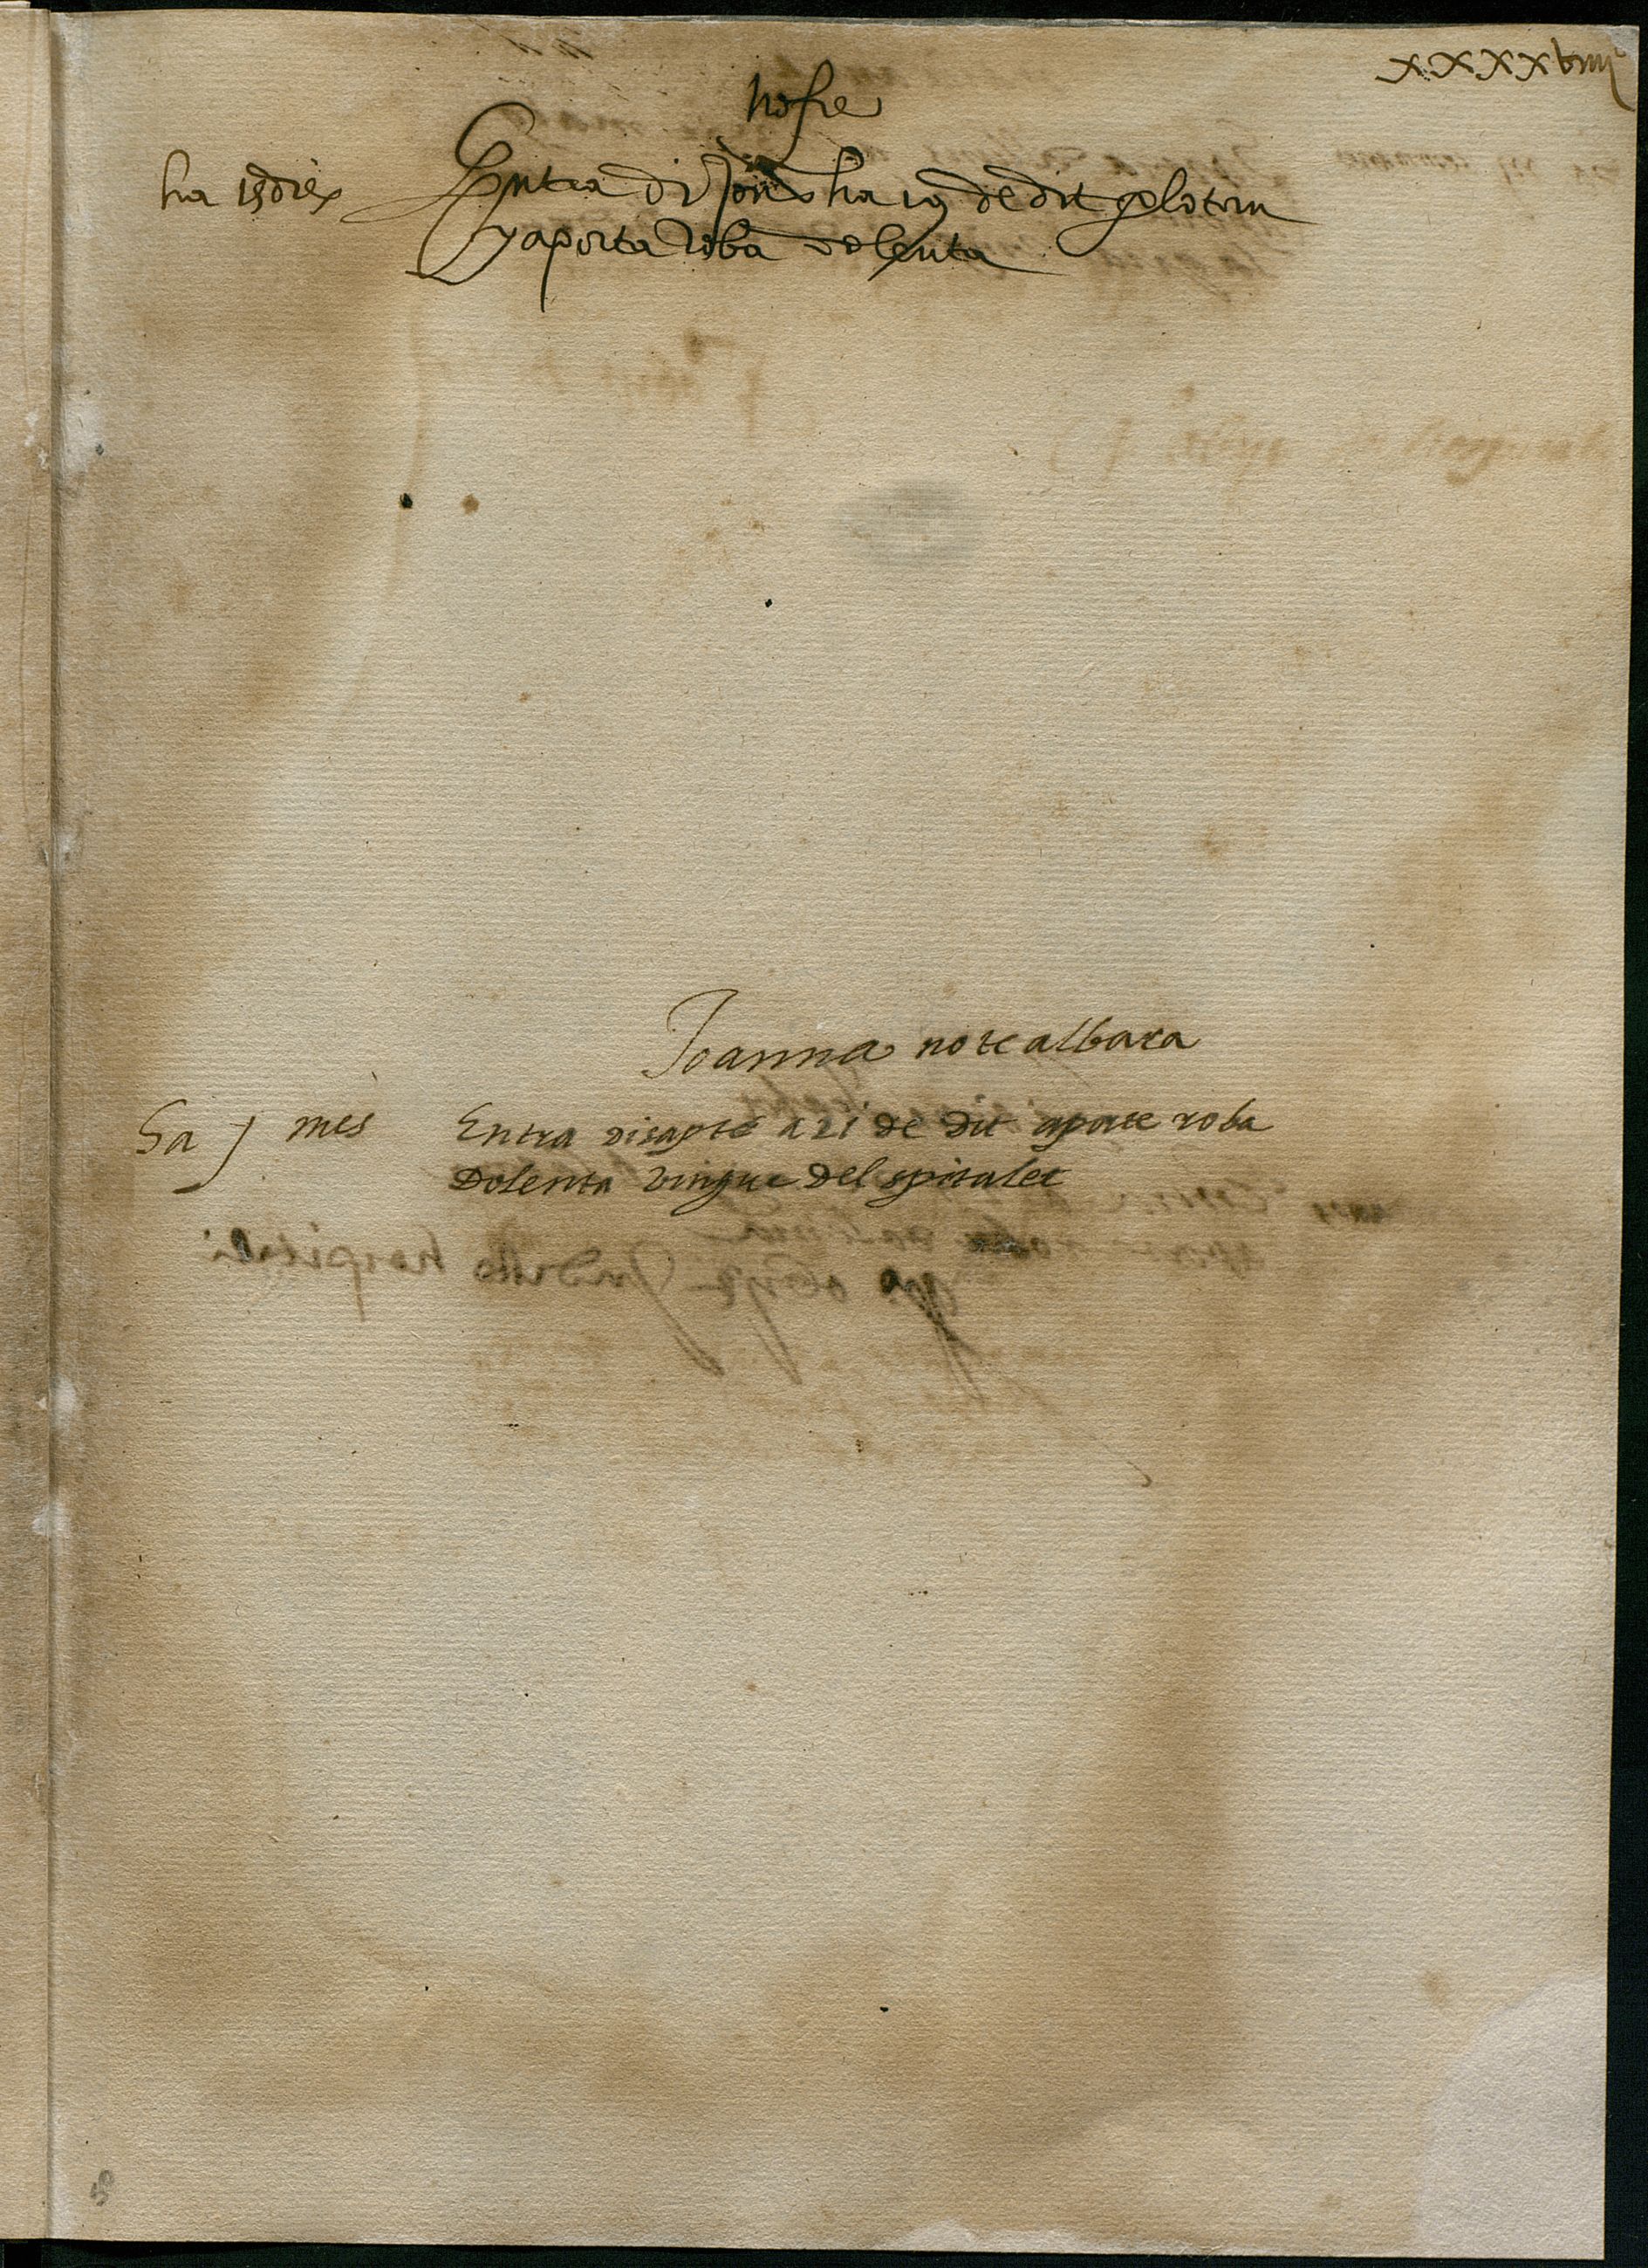 xxxxviiii
nofre
ha 15 dies Entra digous ha 19 de dit
y aporta roba dolenta
Joanna no te albara
ha j mes Entra disapte a 21 de dit aporte roba
dolenta vingue del spitalet